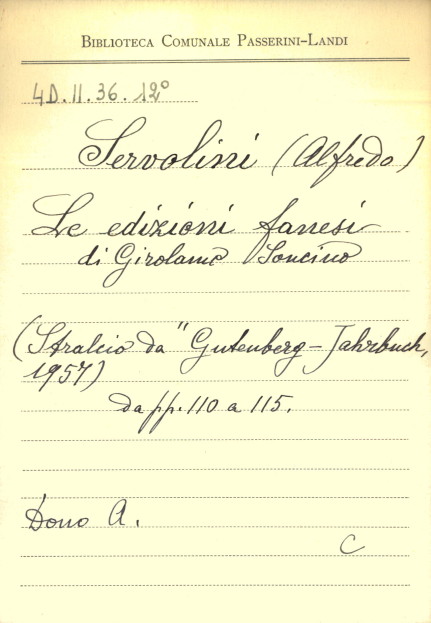 BIBLIOTECA COMUNALE PASSERINI-LANDI
4D.II.36.12°
Servolini (Alfredo)
Le edizioni fanesi
di Girolamo Soncino
(Stralcio da "Gutenberg-Jahrbuch,
1957)
da pp. 110 a 115.
Dono A.
C